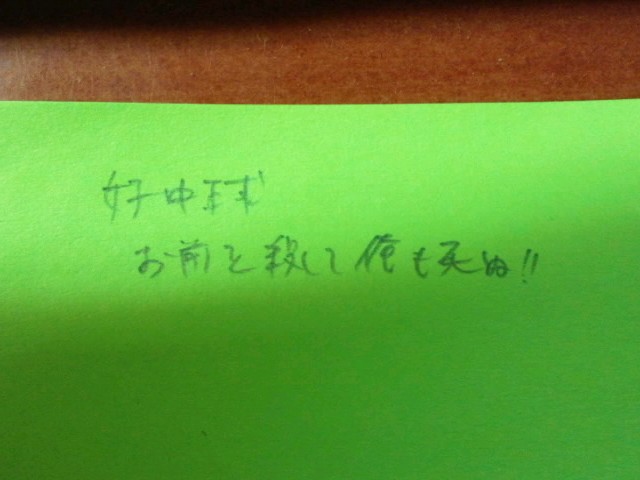 好中球
お前を殺して俺も死ぬ!!